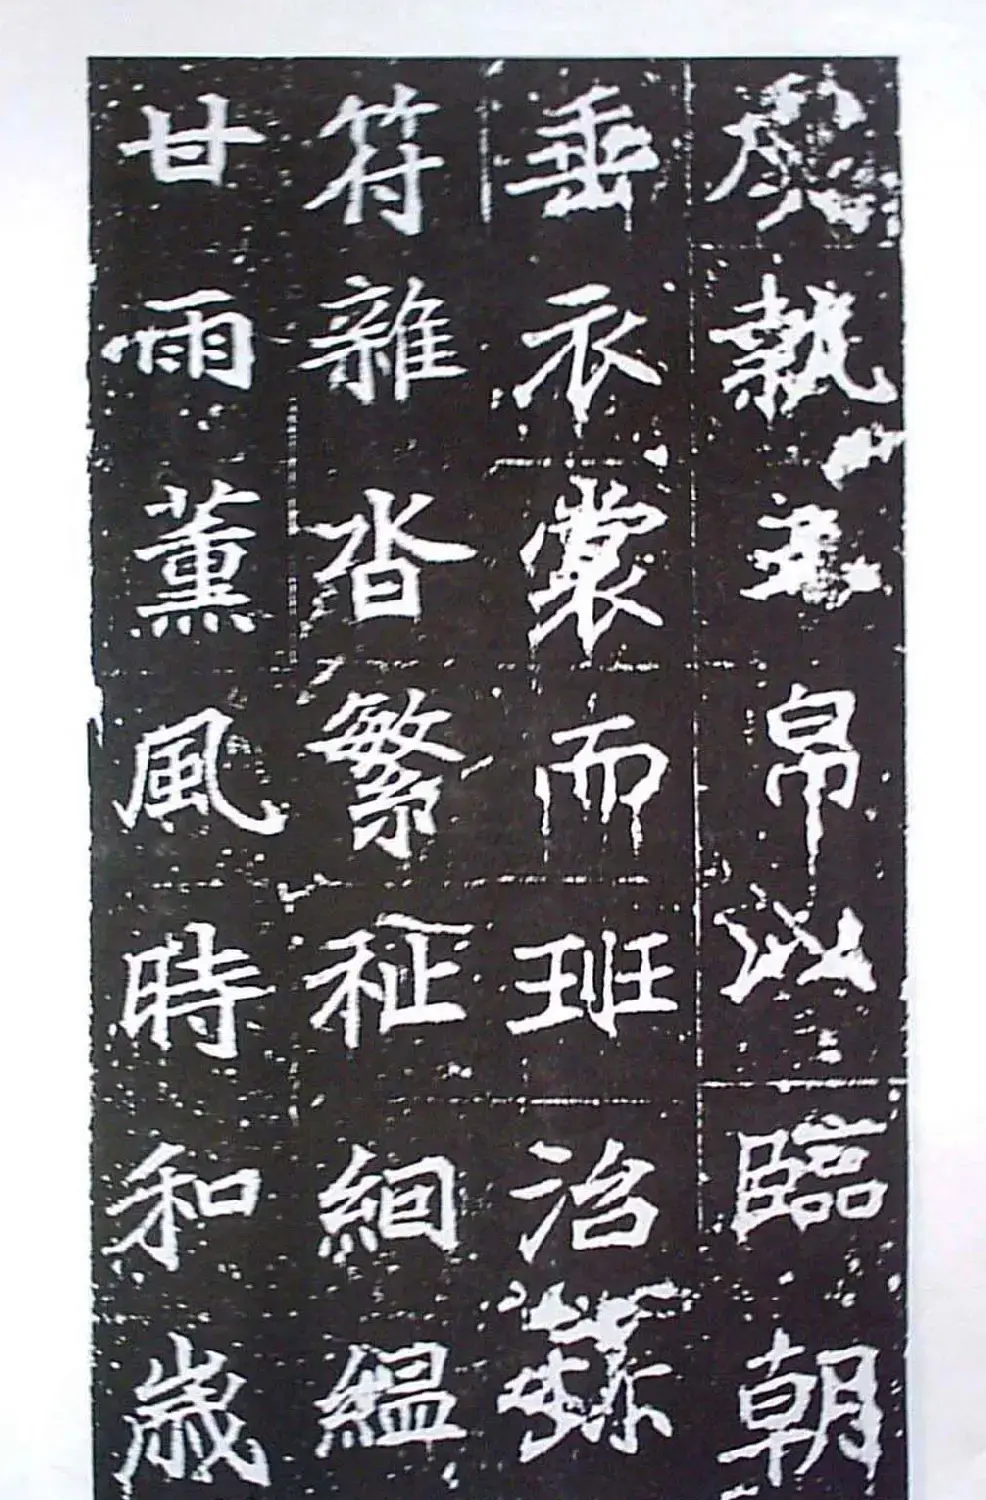 執帛以臨朝
垂衣裳而班治
符雜沓繁祉絪縕
甘雨薰風時和歲